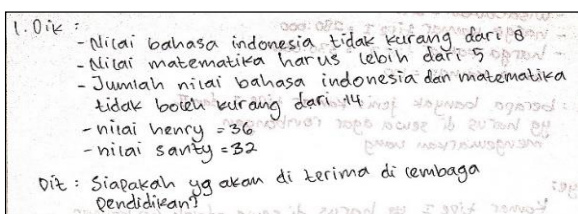 1. Dik :
- Nilai bahasa indonesia tidak kurang dari 8
- Nilai matematika harus lebih dari 5
- Jumlah nilai bahasa indonesia dan matematika
tidak boleh kurang dari 14
- nilai henry = 36
- nilai santy = 32
Dit : Siapakah yg akan di terima di lembaga
pendidikan?